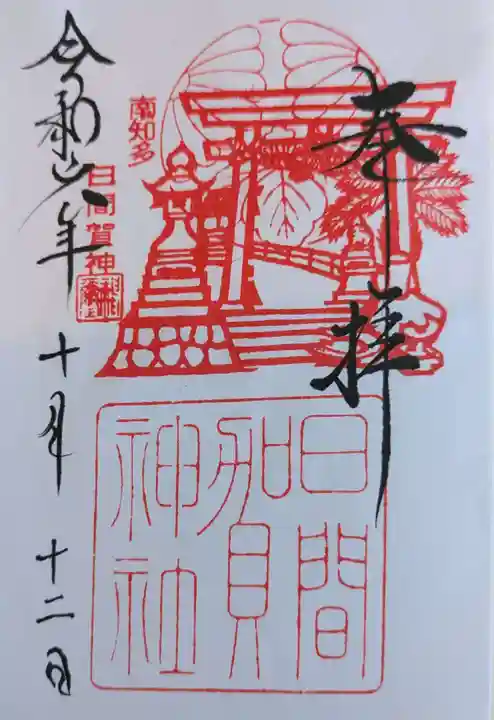 奉拝
日間賀神社
南知多
日間賀神社
令和六年十月十二日